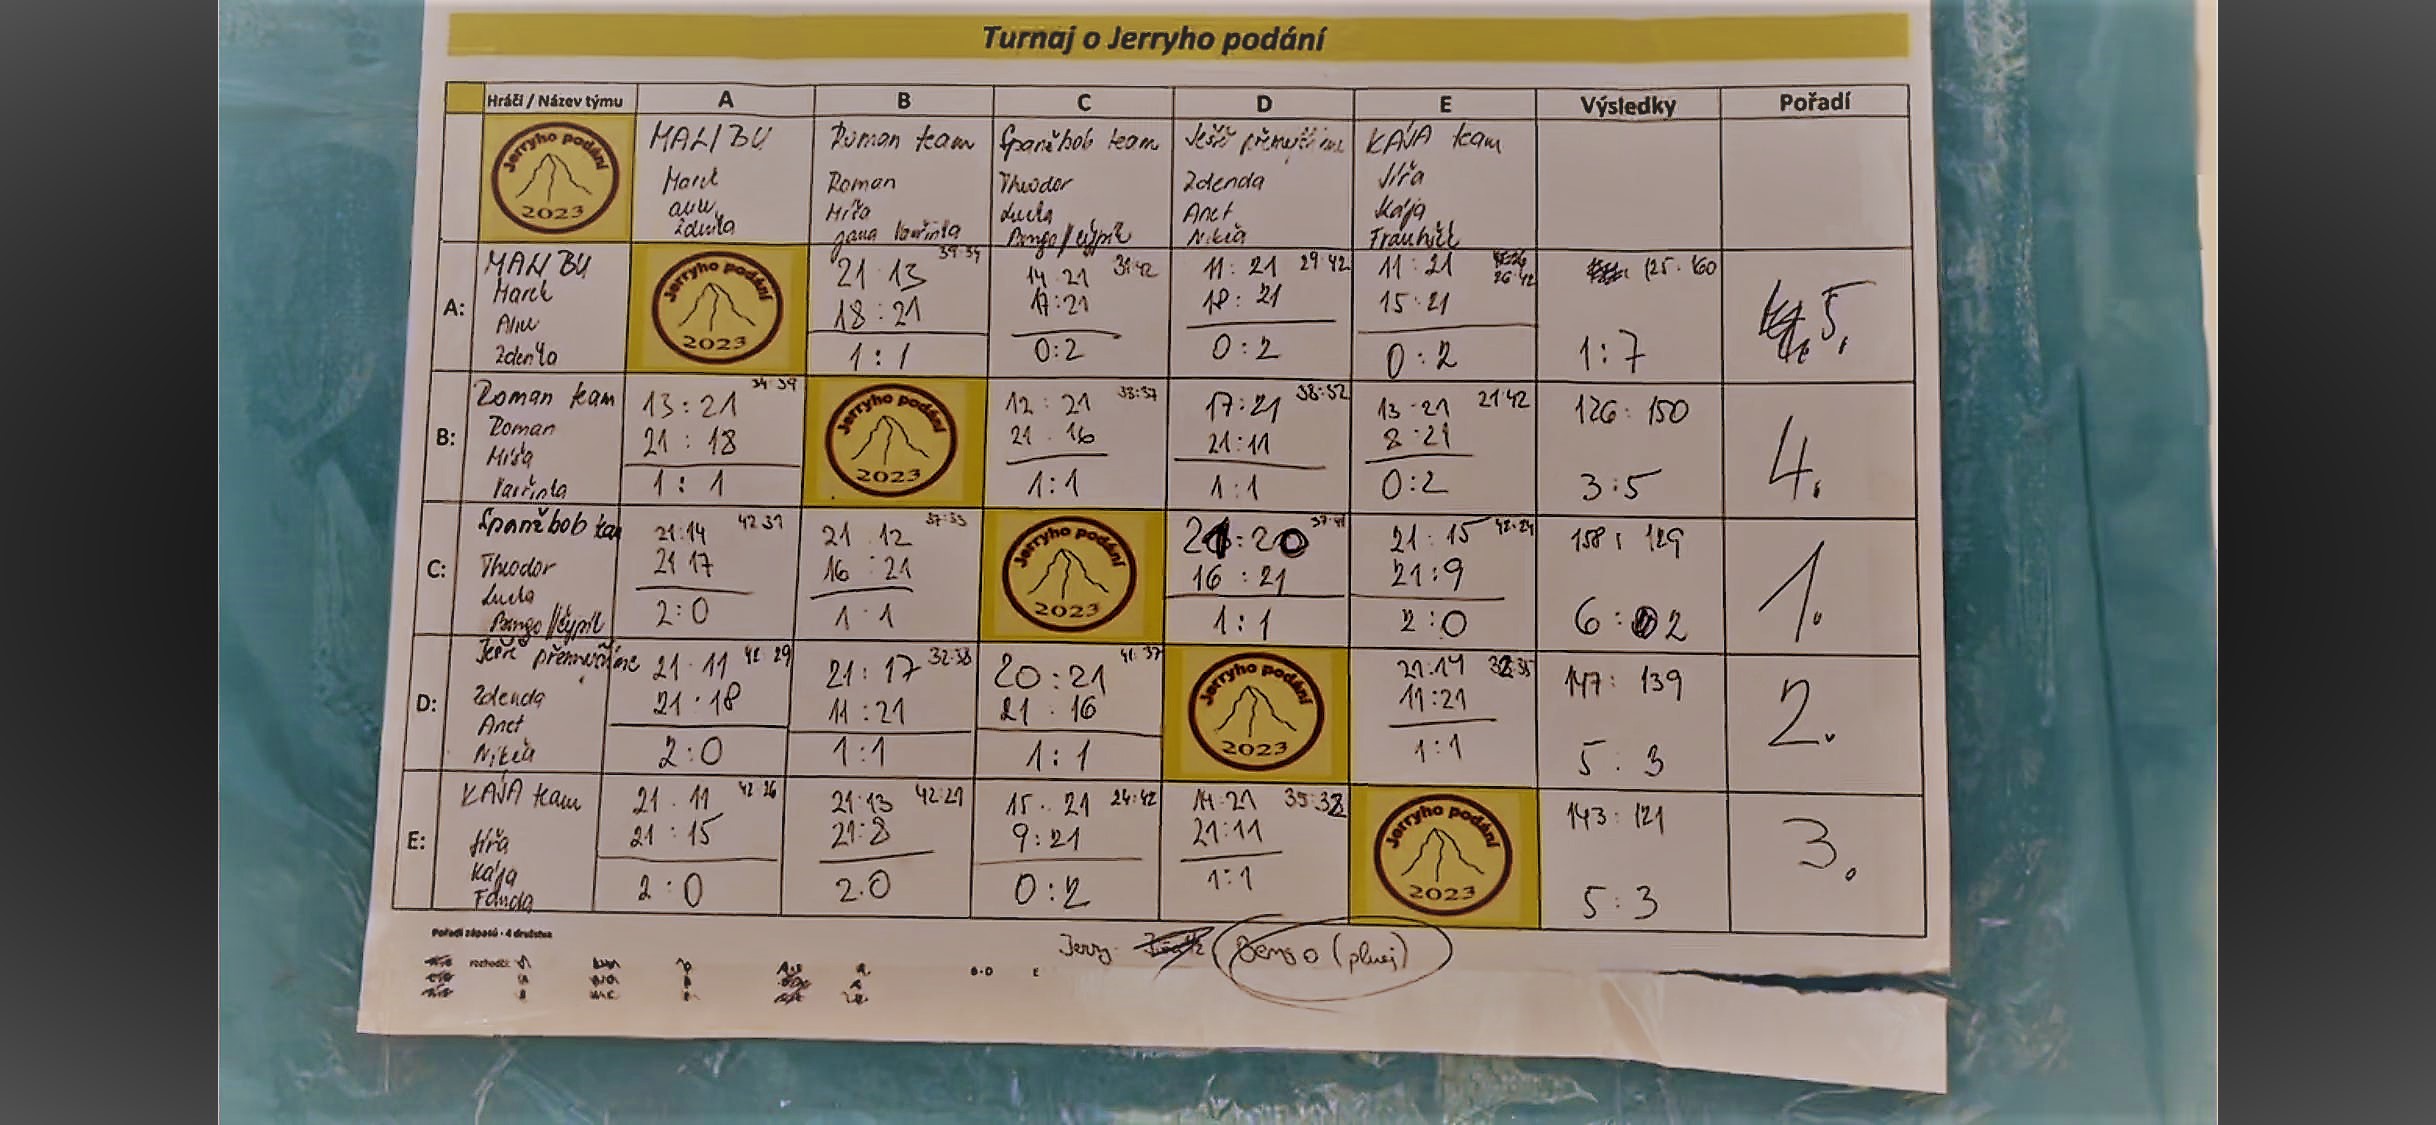 Turnaj o Jerryho podání
Hráči / Název týmu A B C D E Výsledky Pořadí
Jerryho podání 2023
MALIBU
Marek
Zdenka
Roman team
Roman
Míša
Jana Vavřinka
Spanžbob team
Theodor
Lucka
Bingo/
Ještě přemejšlíme
Zdenda
Anet
KÁJA team
Jířa
Kája
A:
MALIBU
Marek
Zdenka
Jerryho podání 2023
21 13 39:34
18:21
1:1
14 21 31:42
17:21
0:2
11:21 29:42
18:21
0:2
11:21
26:42
15:21
0:2
125:160
1:7
5.
B:
Roman team
Roman
Míša
Vavřinka
13:21 34:39
21:18
1:1
Jerryho podání 2023
12:21 33:37
21 16
1:1
17:21 38:32
21:11
1:1
13 21 21:42
8:21
0:2
126:150
3:5
4.
C:
Spanžbob team
Theodor
Lucka
Bingo/
21:14 42 31
21 17
2:0
21 12 37:33
16:21
1 1
Jerryho podání 2023
21:20 37:41
16:21
1:1
21:15 42:24
21:9
2:0
158:129
6:2
1.
D:
Ještě přemejšlíme
Zdenda
Anet
21 11 42:29
21:18
2:0
21:17 32:38
11:21
1:1
20:21 41:37
21:16
1:1
Jerryho podání 2023
21:14 32:35
11:21
1:1
147:139
5:3
2.
E:
KÁJA team
Jířa
Kája
Fanda
21 11 42:26
21:15
2:0
21:13 42:21
21:8
2:0
15:21 24:42
9:21
0:2
14:21 35:32
21:11
1:1
Jerryho podání 2023
143:121
5:3
3.
Pořadí zápasů - 4 družstva
rozhodčí:
Jerry